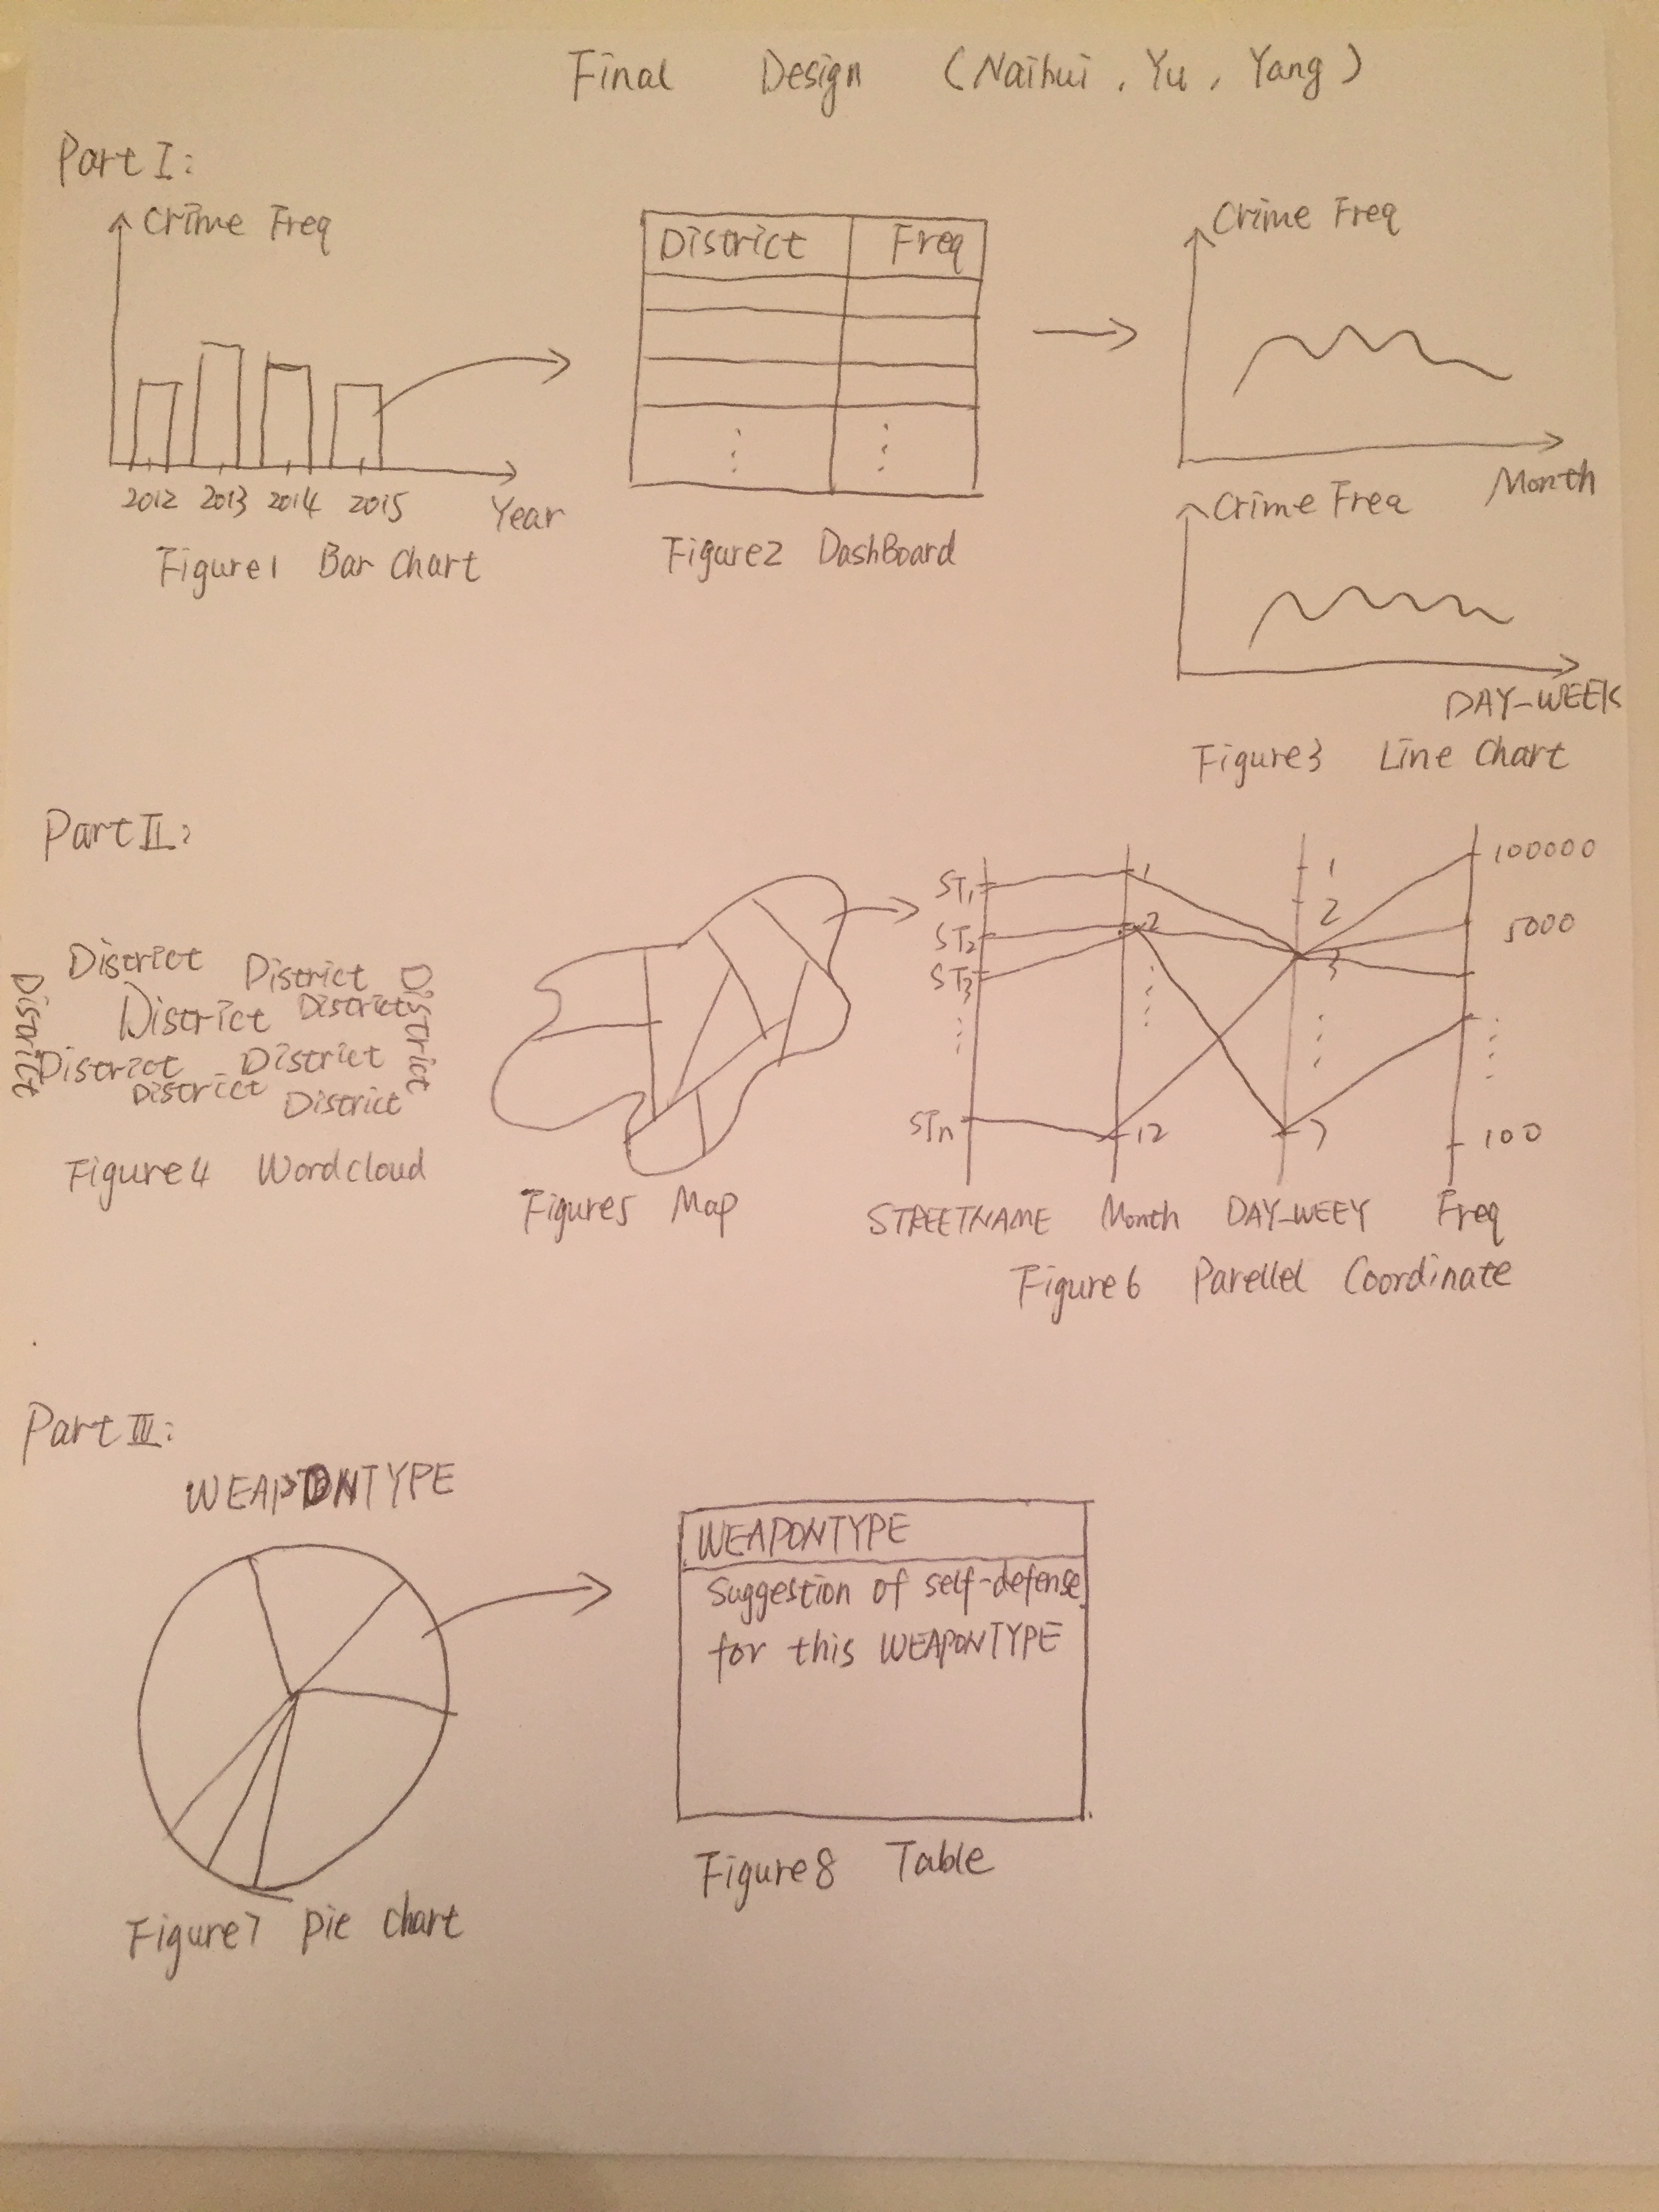 Final Design (Naihui, Yu, Yang)
Part I:
Crime Freq
2012 2013 2014 2015
Year
Figure1 Bar Chart
District Freq
Figure2 DashBoard
Crime Freq
Month
Crime Freq
DAY-WEEK
Figure3 Line Chart
Part II:
District
District
District
District
District
District
District
District
District
District
Figure4 Wordcloud
Figure5 Map
ST1
ST2
ST3
STn
1
2
12
1
2
3
7
100000
5000
100
STREETNAME Month DAY-WEEY Freq
Figure6 Parellel Coordinate
Part III:
WEAPONTYPE
Figure7 Pie chart
WEAPONTYPE
Suggestion of self-defense
for this WEAPONTYPE
Figure8 Table